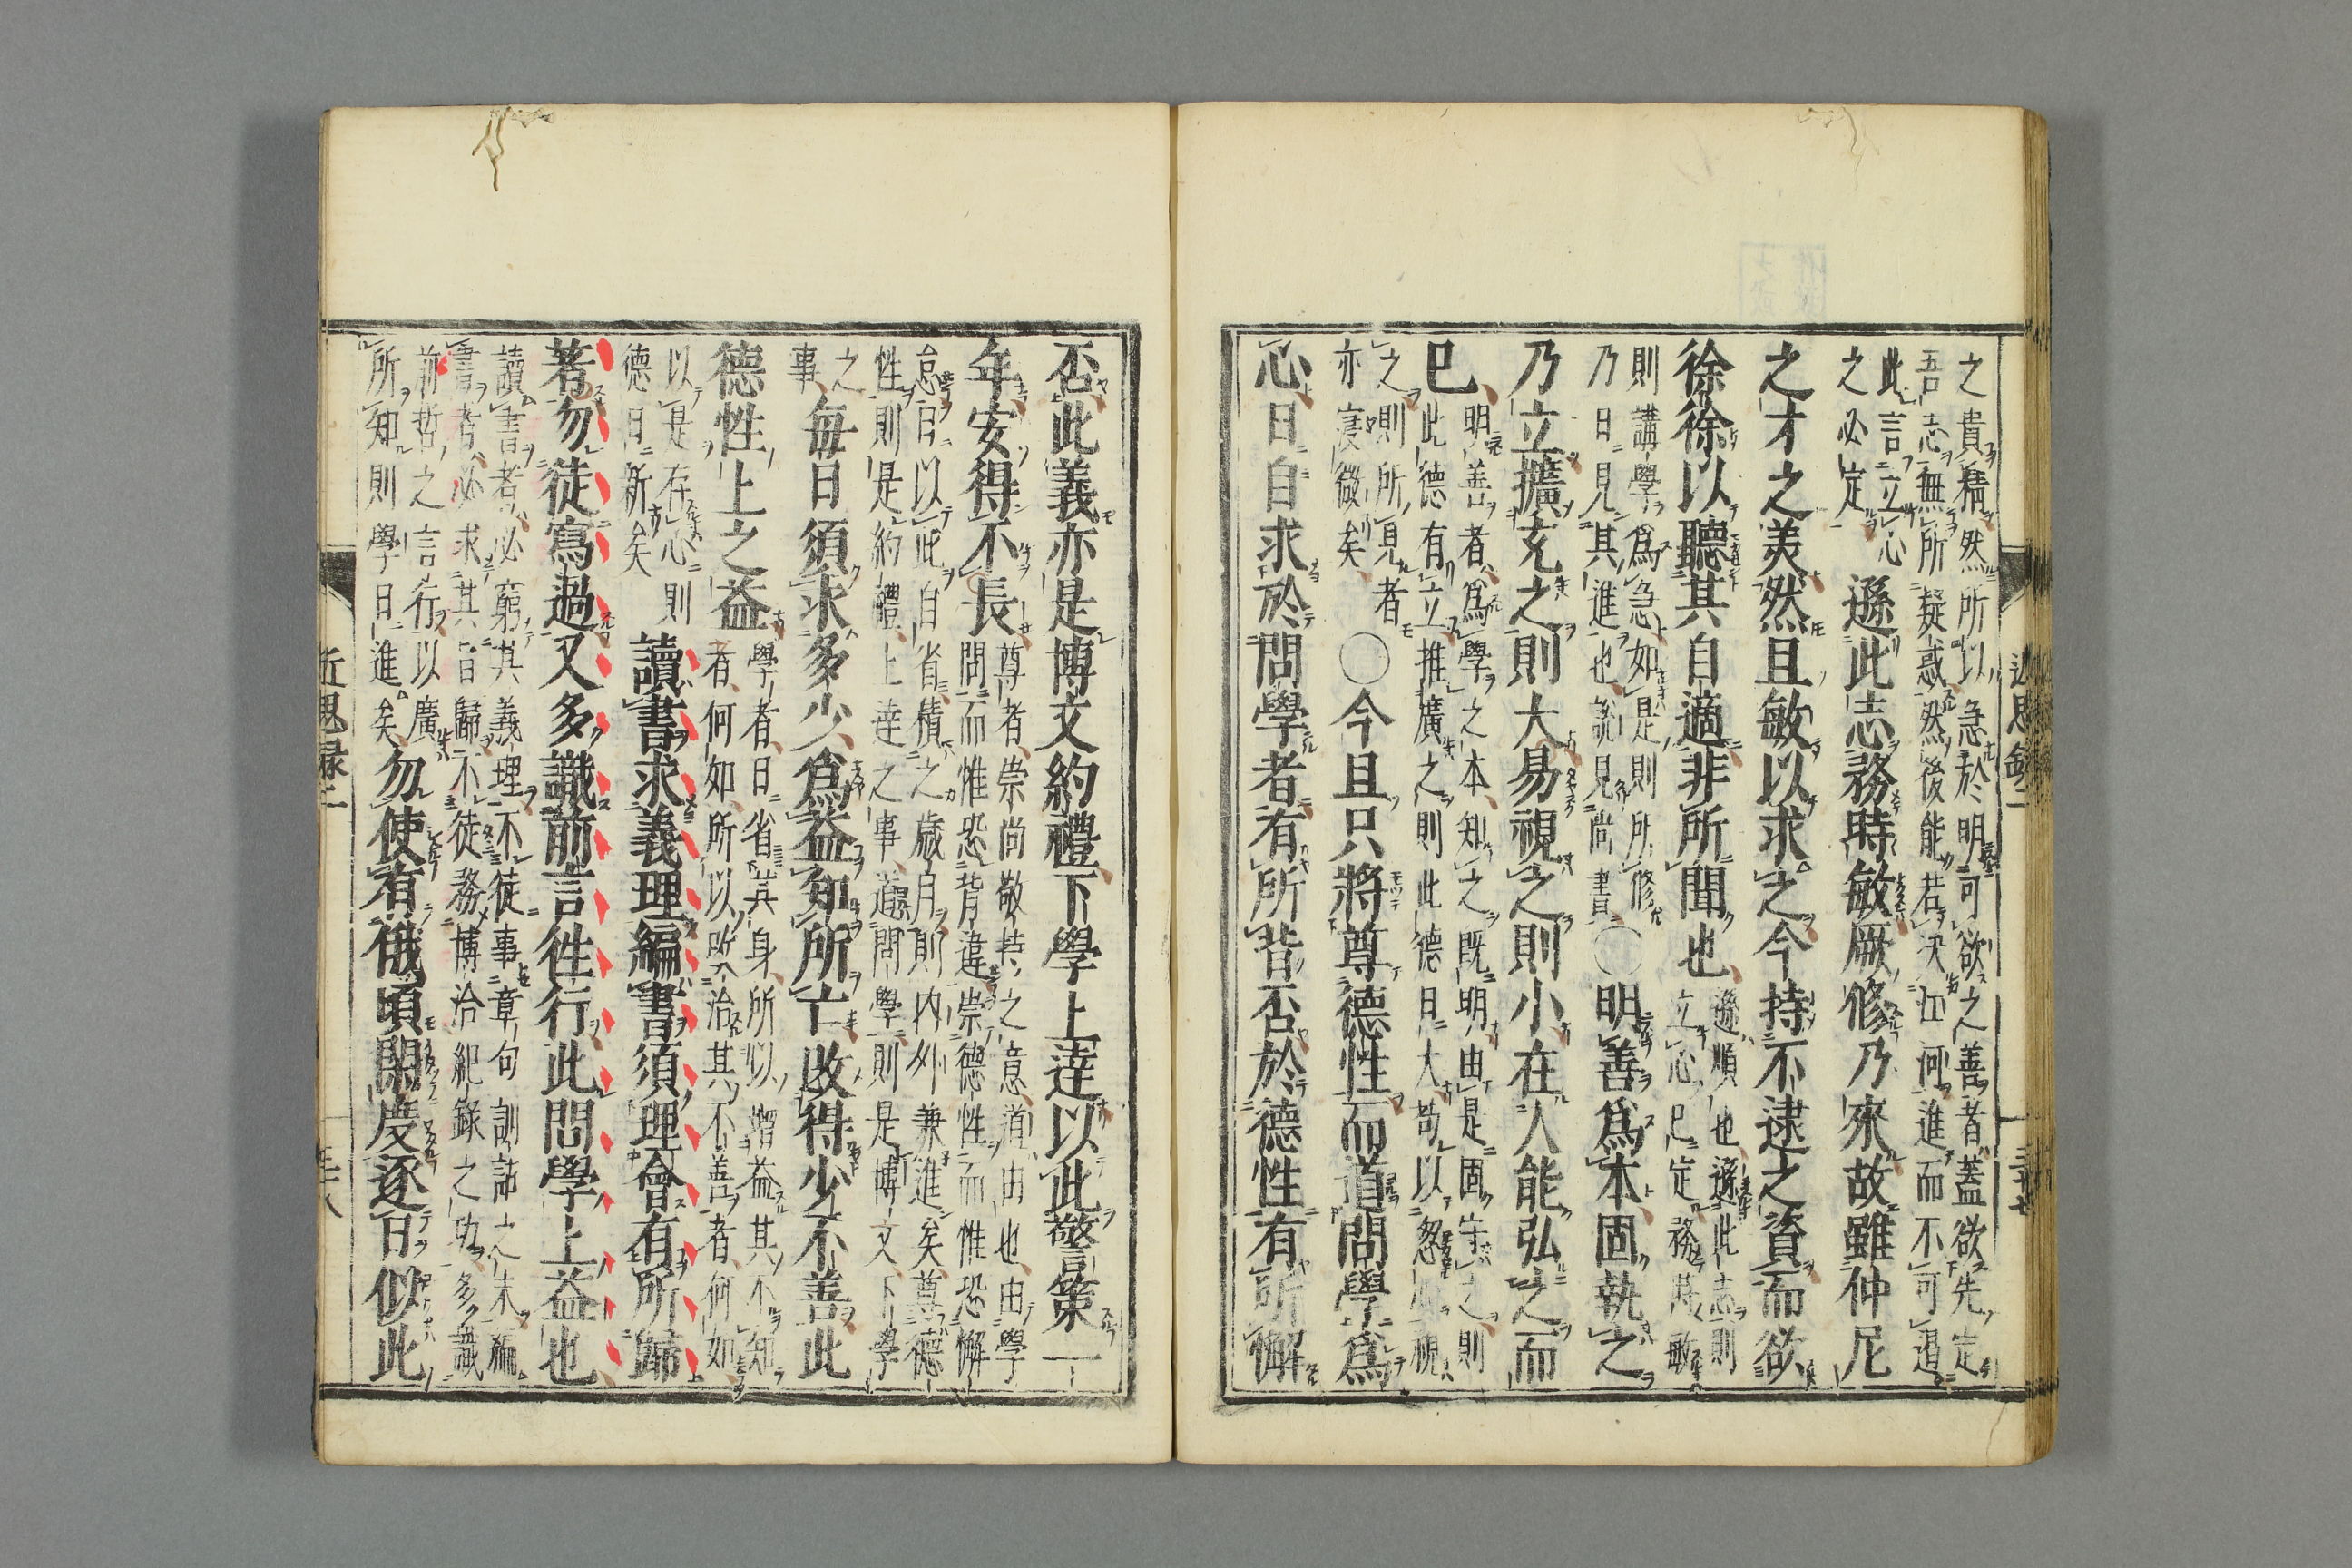 之貴積然所以急於明可欲之善者蓋欲先定
吾志無所疑惑然後能若決江河進而不可遏
此言立心
之必定
遜此志務時敏厥修乃來故雖仲尼
之才之美然且敏以求之今持不逮之資而欲
徐徐以聽其自適非所聞也
遜順也遜此志則
立心已定務時敏
則講學爲急如是則所修
乃日見其進也說見尚書
〇明善爲本固執之
乃立擴充之則大易視之則小在人能弘之而
已
明善者爲學之本知之既明由是固守之則
此德有立推廣之則此德日大苟以忽心視
之則所見者
亦寖微矣
〇今且只將尊德性而道問學爲
心日自求於問學者有所背否於德性有所懈
否此義亦是博文約禮下學上達以此警策一
年安得不長
尊者崇尚敬持之意道由也由學
問而惟恐背違崇德性而惟恐懈
怠日以此自省積之歲月則内外兼進矣尊德
性則是約禮上達之事道問學則是博文下學
之
事
每日須求多少爲益知所亡改得少不善此
德性上之益
學者日省其身所以増益其不知
者何如所以改治其不善者何如
以是存心則
德日新矣
讀書求義理編書須理會有所歸
著勿徒寫過又多識前言徃行此問學上益也
讀書者必窮其義理不徒事章句訓詁之末編
書者必求其旨歸不徒務博洽紀錄之功多識
前哲之言行以廣
所知則學日進矣
勿使有俄頃閑度逐日似此
近思録二
三十七
近思録二
三十八